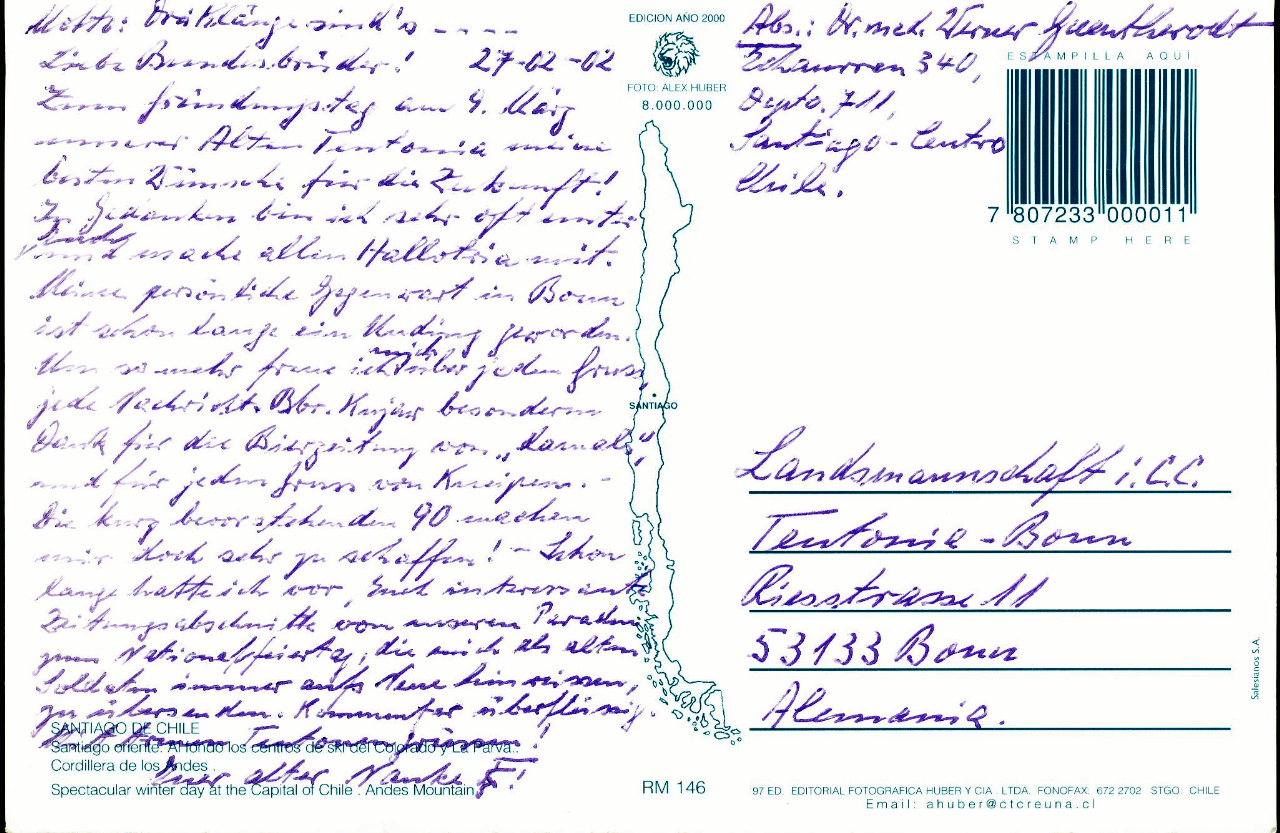 Motto: Drei Klänge sind's - - - -
Liebe Bundesbrüder! 27-02-02
Zum Gründungstag am 9. März
unserer Alten Teutonia meine
besten Wünsche für die Zukunft!
In Gedanken bin ich sehr oft unter
Euch
und mache allen Hallotria mit.
Meine persönliche Gegenwart in Bonn
ist schon lange ein Unding geworden.
Um so mehr freue ich mich über jeden Gruss,
jede Nachricht. Bbr. besonderen
Dank für die Bierzeitung von „damals“,
und für jeden Gruss von Kneipen. -
Die kurz bevorstehenden 90 machen
mir doch sehr zu schaffen! - Schon
lange hatte ich vor, Euch interessante
Zeitungsabschnitte von unseren Paraden
zum Nationalfeiertag, die mich als alten
Soldaten immer aufs Neue hinreissen,
zu übersenden. Kommentar überflüssig.
Teutonengrüssen!
Euer alter
EDICION AÑO 2000
FOTO: ALEX HUBER
8.000.000
SANTIAGO
Abs.: Dr. med. Werner Guentherodt
Echaurren 340,
Depto. 711,
Santiago - Centro
Chile.
ESTAMPILLA AQUÍ
7 807233 000011
STAMP HERE
Landsmannschaft i. C.C.
Teutonia - Bonn
Riesstrasse 11
53133 Bonn
Alemania.
Salesianos S.A.
SANTIAGO DE CHILE
Santiago oriente. Al fondo los centros de ski del Colorado y La Parva..
Cordillera de los Andes .
Spectacular winter day at the Capital of Chile . Andes Mountain
RM 146
97 ED. EDITORIAL FOTOGRAFICA HUBER Y CIA . LTDA. FONOFAX: 672 2702 STGO. CHILE
Email: ahuber@ctcreuna.cl